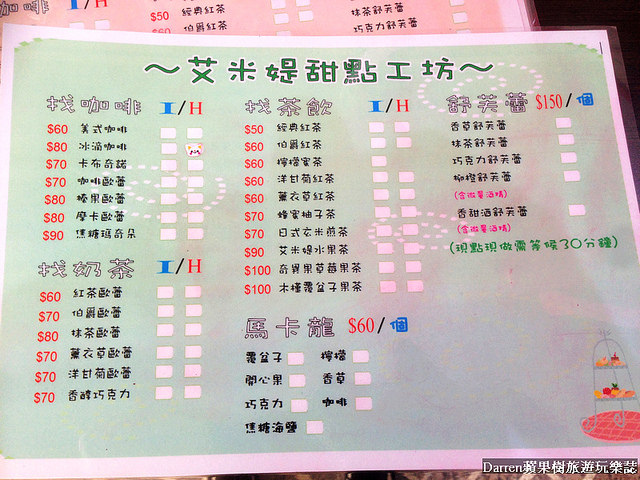 咖啡 I/H
$50 經典紅茶
$60 伯爵紅茶
抹茶舒芙蕾
巧克力舒芙蕾
～艾米媞甜點工坊～
找咖啡 I/H
$60 美式咖啡
$80 冰滴咖啡
$70 卡布奇諾
$70 咖啡歐蕾
$80 榛果歐蕾
$80 摩卡歐蕾
$90 焦糖瑪奇朵
找奶茶 I/H
$60 紅茶歐蕾
$70 伯爵歐蕾
$80 抹茶歐蕾
$70 薰衣草歐蕾
$70 洋甘菊歐蕾
$70 香醇巧克力
找茶飲 I/H
$50 經典紅茶
$60 伯爵紅茶
$60 檸檬蜜茶
$60 洋甘菊紅茶
$60 薰衣草紅茶
$70 蜂蜜柚子茶
$70 日式玄米煎茶
$90 艾米媞水果茶
$100 奇異果草莓果茶
$100 木槿覆盆子果茶
馬卡龍 $60/個
覆盆子 檸檬
開心果 香草
巧克力 咖啡
焦糖海鹽
舒芙蕾 $150/個
香草舒芙蕾
抹茶舒芙蕾
巧克力舒芙蕾
柳橙舒芙蕾
(含微量酒精)
香甜酒舒芙蕾
(含微量酒精)
(現點現做需等候30分鐘)
Darren蘋果樹旅遊玩樂誌